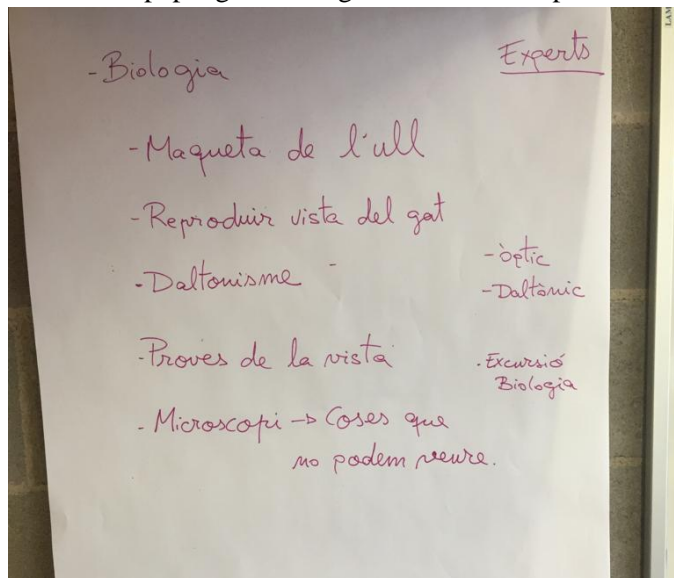 - Biologia
Experts
- Maqueta de l'ull
- Reproduir vista del gat
- Daltonisme -
- òptic
- Daltònic
- Proves de la vista
- Excursió
Biologia
- Microscopi → Coses que
no podem veure.